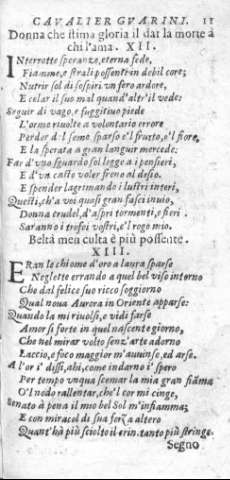 CAVALIER GVARINI. 11
Donna che stima gloria il dar la morte à
chi l'ama. XII.
INterrotte speranze, eterna fede,
Fiamme, e strali possenti in debil core;
Nutrir sol di sospiri vn fero ardore,
E celar il suo mal quand'altr'il vede:
Seguir di vago, e fuggitiuo piede
L'orme riuolte a volontario errore
Perder d'l seme sparso e'l frutto, e'l fiore,
E la sperata a gran languir mercede:
Far d'vno sguardo sol legge a i pensieri,
E d'vn casto voler freno al desio.
E spender lagrimando i lustri interi,
Questi, ch'a voi quasi gran fasci inuio,
Donna crudel, d'aspri tormenti, e fieri
Saranno i trofei vostri, e'l rogo mio.
Beltà men culta è più possente.
XIII.
ERan le chiome d'oro a laura sparse
Neglette errando a quel bel viso intorno
Che dal felice suo ricco soggiorno
Qual noua Aurora in Oriente apparse:
Quando la mi riuolsi, e vidi farse
Amor si forte in quel nascente giorno,
Che nel mirar volto senz'arte adorno
Laccio, e foco maggior m'auuinse, ed arse.
A l'or i' dissi, ahi, come indarno i' spero
Per tempo vnqua scemar la mia gran fiāma
O'l nodo rallentar, che'l cor mi cinge,
Se nato à pena il mio bel Sol m'infiamma;
E con miracol di sua forza altero
Quant'hà più sciolto il crin, tanto più stringe.
Segno